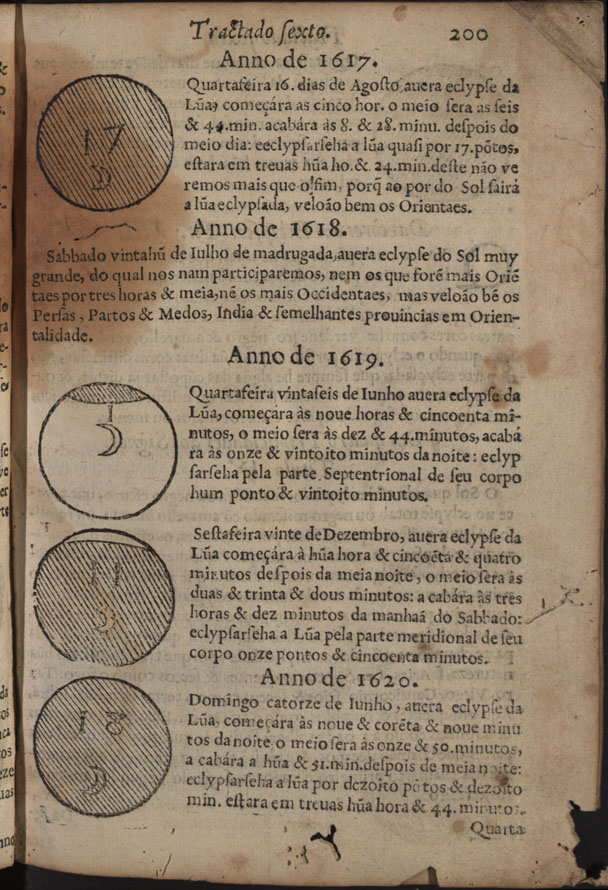 Tractado sexto. 200
Anno de 1617.
Quartafeira 16. dias de Agosto, auera eclypse da
Lũa, começára as cinco hor. o meio sera as seis
& 44. min. acabára às 8. & 28. minu. despois do
meio dia: eeclypsarseha a lũa quasi por 17. põtos,
estara em treuas hũa ho. & 24. min. deste não ve
remos mais que o fim, porq̃ ao por do Sol sairá
a lũa eclypsada, veloão bem os Orientaes.
17
Anno de 1618.
Sabbado vintahũ de Iulho de madrugada, auera eclypse do Sol muy
grande, do qual nos nam participaremos, nem os que forẽ mais Oriẽ
taes por tres horas & meia, nẽ os mais Occidentaes, mas veloão bẽ os
Persas, Partos & Medos, India & semelhantes prouincias em Orien-
talidade.
Anno de 1619.
Quartafeira vintaseis de Iunho auera eclypse da
Lũa, começára às noue horas & cincoenta mi-
nutos, o meio sera às dez & 44. minutos, acabá
ra às onze & vintoito minutos da noite: eclyp
sarseha pela parte Septentrional de seu corpo
hum ponto & vintoito minutos.
1
Sestafeira vinte de Dezembro, auera eclypse da
Lũa começára à hũa hora & cincoẽta & quatro
minutos despois da meia noite, o meio sera às
duas & trinta & dous minutos: a cabára às tres
horas & dez minutos da manhaã do Sabbado:
eclypsarseha a Lũa pela parte meridional de seu
corpo onze pontos & cincoenta minutos.
11
Anno de 1620.
Domingo catorze de Iunho, auera eclypse da
Lũa, começára às noue & corẽta & noue minu
tos da noite o meio sera às onze & 50. minutos,
a cabára a hũa & 51. min. despois de meia noite:
eclypsarseha a lũa por dezoito põtos & dezoito
min. estara em treuas hũa hora & 44. minutos.
18
Quarta